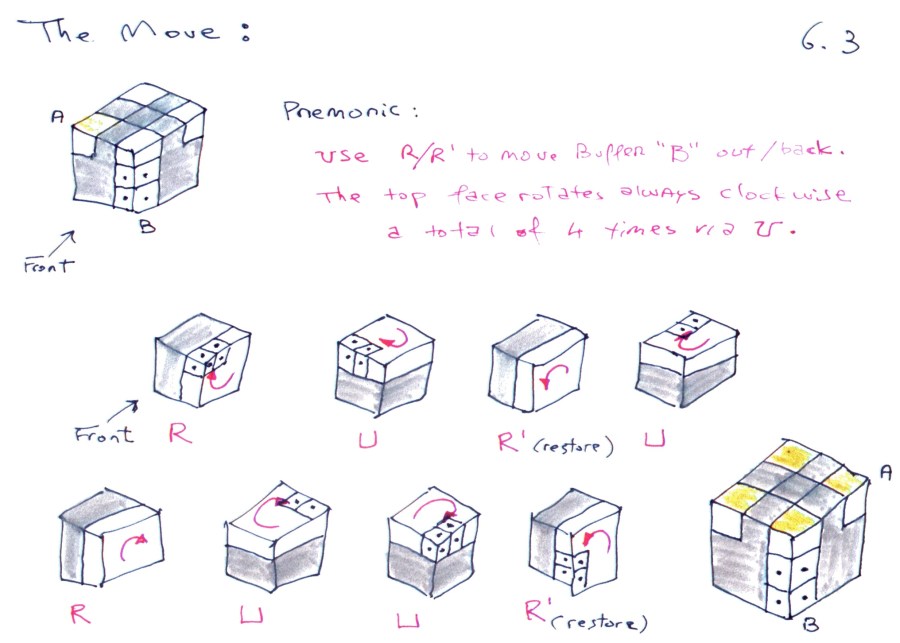 The Move :
6.3
A
B
Front
Pnemonic :
use R/R' to move Buffer "B" out/back.
The top face rotates always clockwise
a total of 4 times via U.
Front
R
U
R' (restore)
U
A
B
R
U
U
R' (restore)